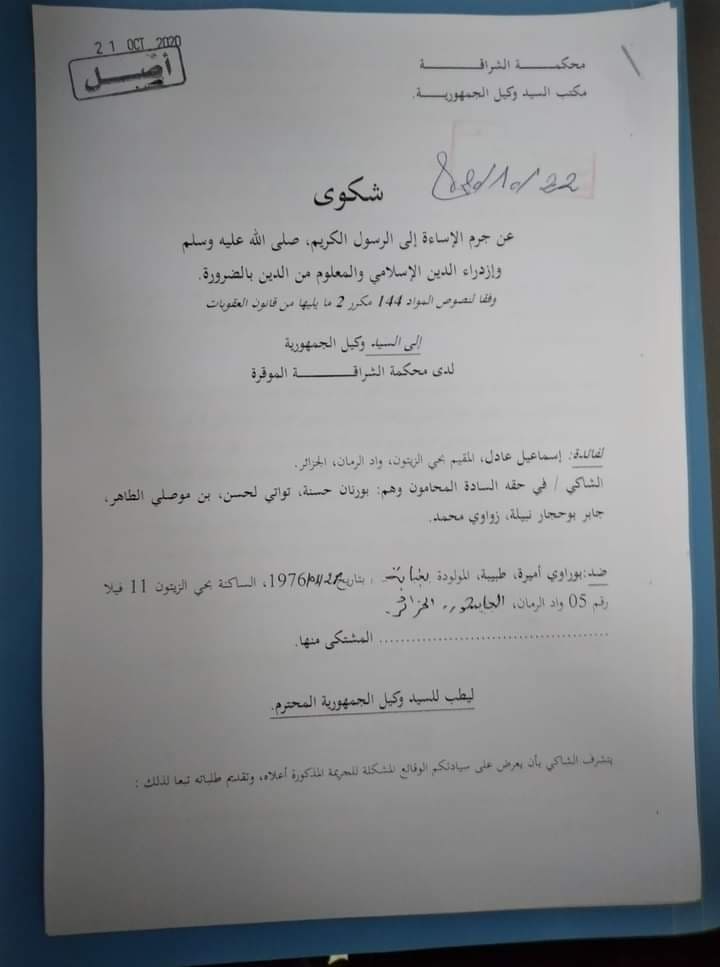 21 OCT. 2020
أصل
محكمة الشراقة
مكتب السيد وكيل الجمهورية.
شكوى
عن جرم الإساءة إلى الرسول الكريم، صلى الله عليه وسلم
وإزدراء الدين الإسلامي والمعلوم من الدين بالضرورة.
وفقا لنصوص المواد 144 مكرر 2 ما يليها من قانون العقوبات
إلى السيد وكيل الجمهورية
لدى محكمة الشراقة الموقرة
لفائدة: إسماعيل عادل، المقيم بحي الزيتون، واد الرمان، الجزائر.
الشاكي / في حقه السادة المحامون وهم: بورنان حسنة، تواتي لحسن، بن موصلي الطاهر،
جابر بوحجار نبيلة، زواوي محمد.
ضد: بوراوي أميرة، طبيبة، المولودة بتاريخ 1976، الساكنة بحي الزيتون 11 فيلا
رقم 05 واد الرمان، الجزائر.
.......................................... المشتكى منها.
ليطب للسيد وكيل الجمهورية المحترم.
يتشرف الشاكي بأن يعرض على سيادتكم الوقائع المشكلة للجريمة المذكورة أعلاه، وتقديم طلباته تبعا لذلك :